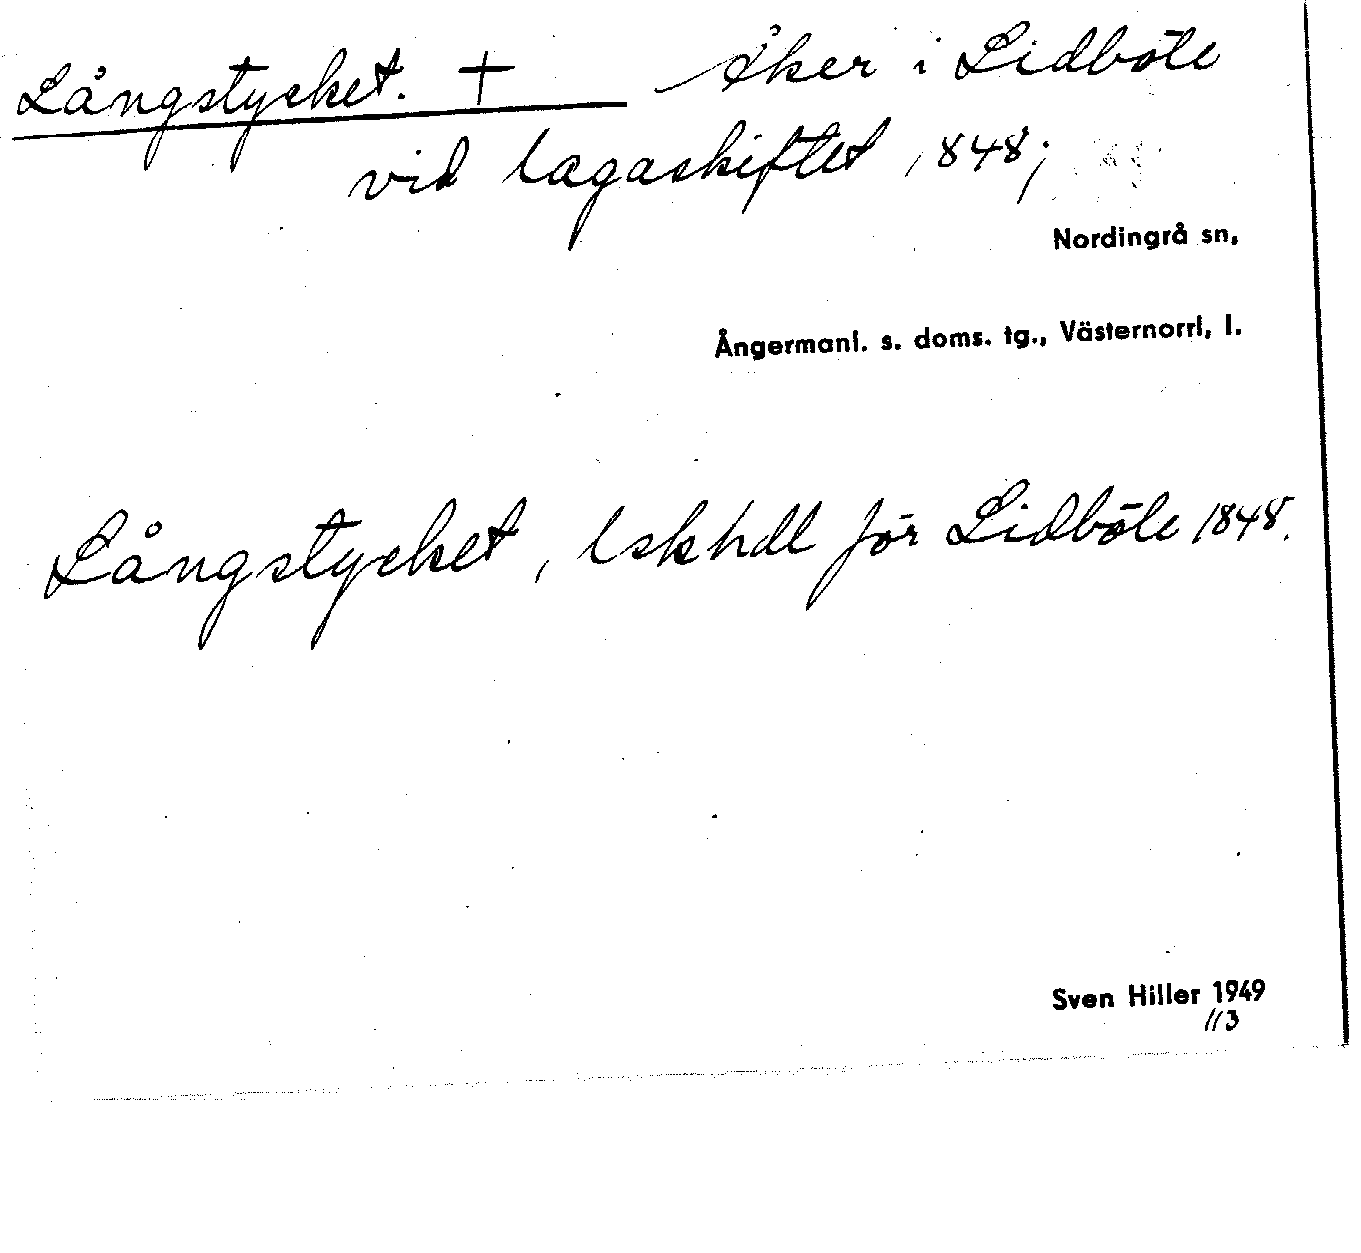 Långstycket. + Åker i Lidböle
vid lagaskiftet 1848;
Nordingrå sn,
Ångermanl. s. doms. tg., Västernorrl, l.
Långstycket, lskhdl för Lidböle 1848.
Sven Hiller 1949
113